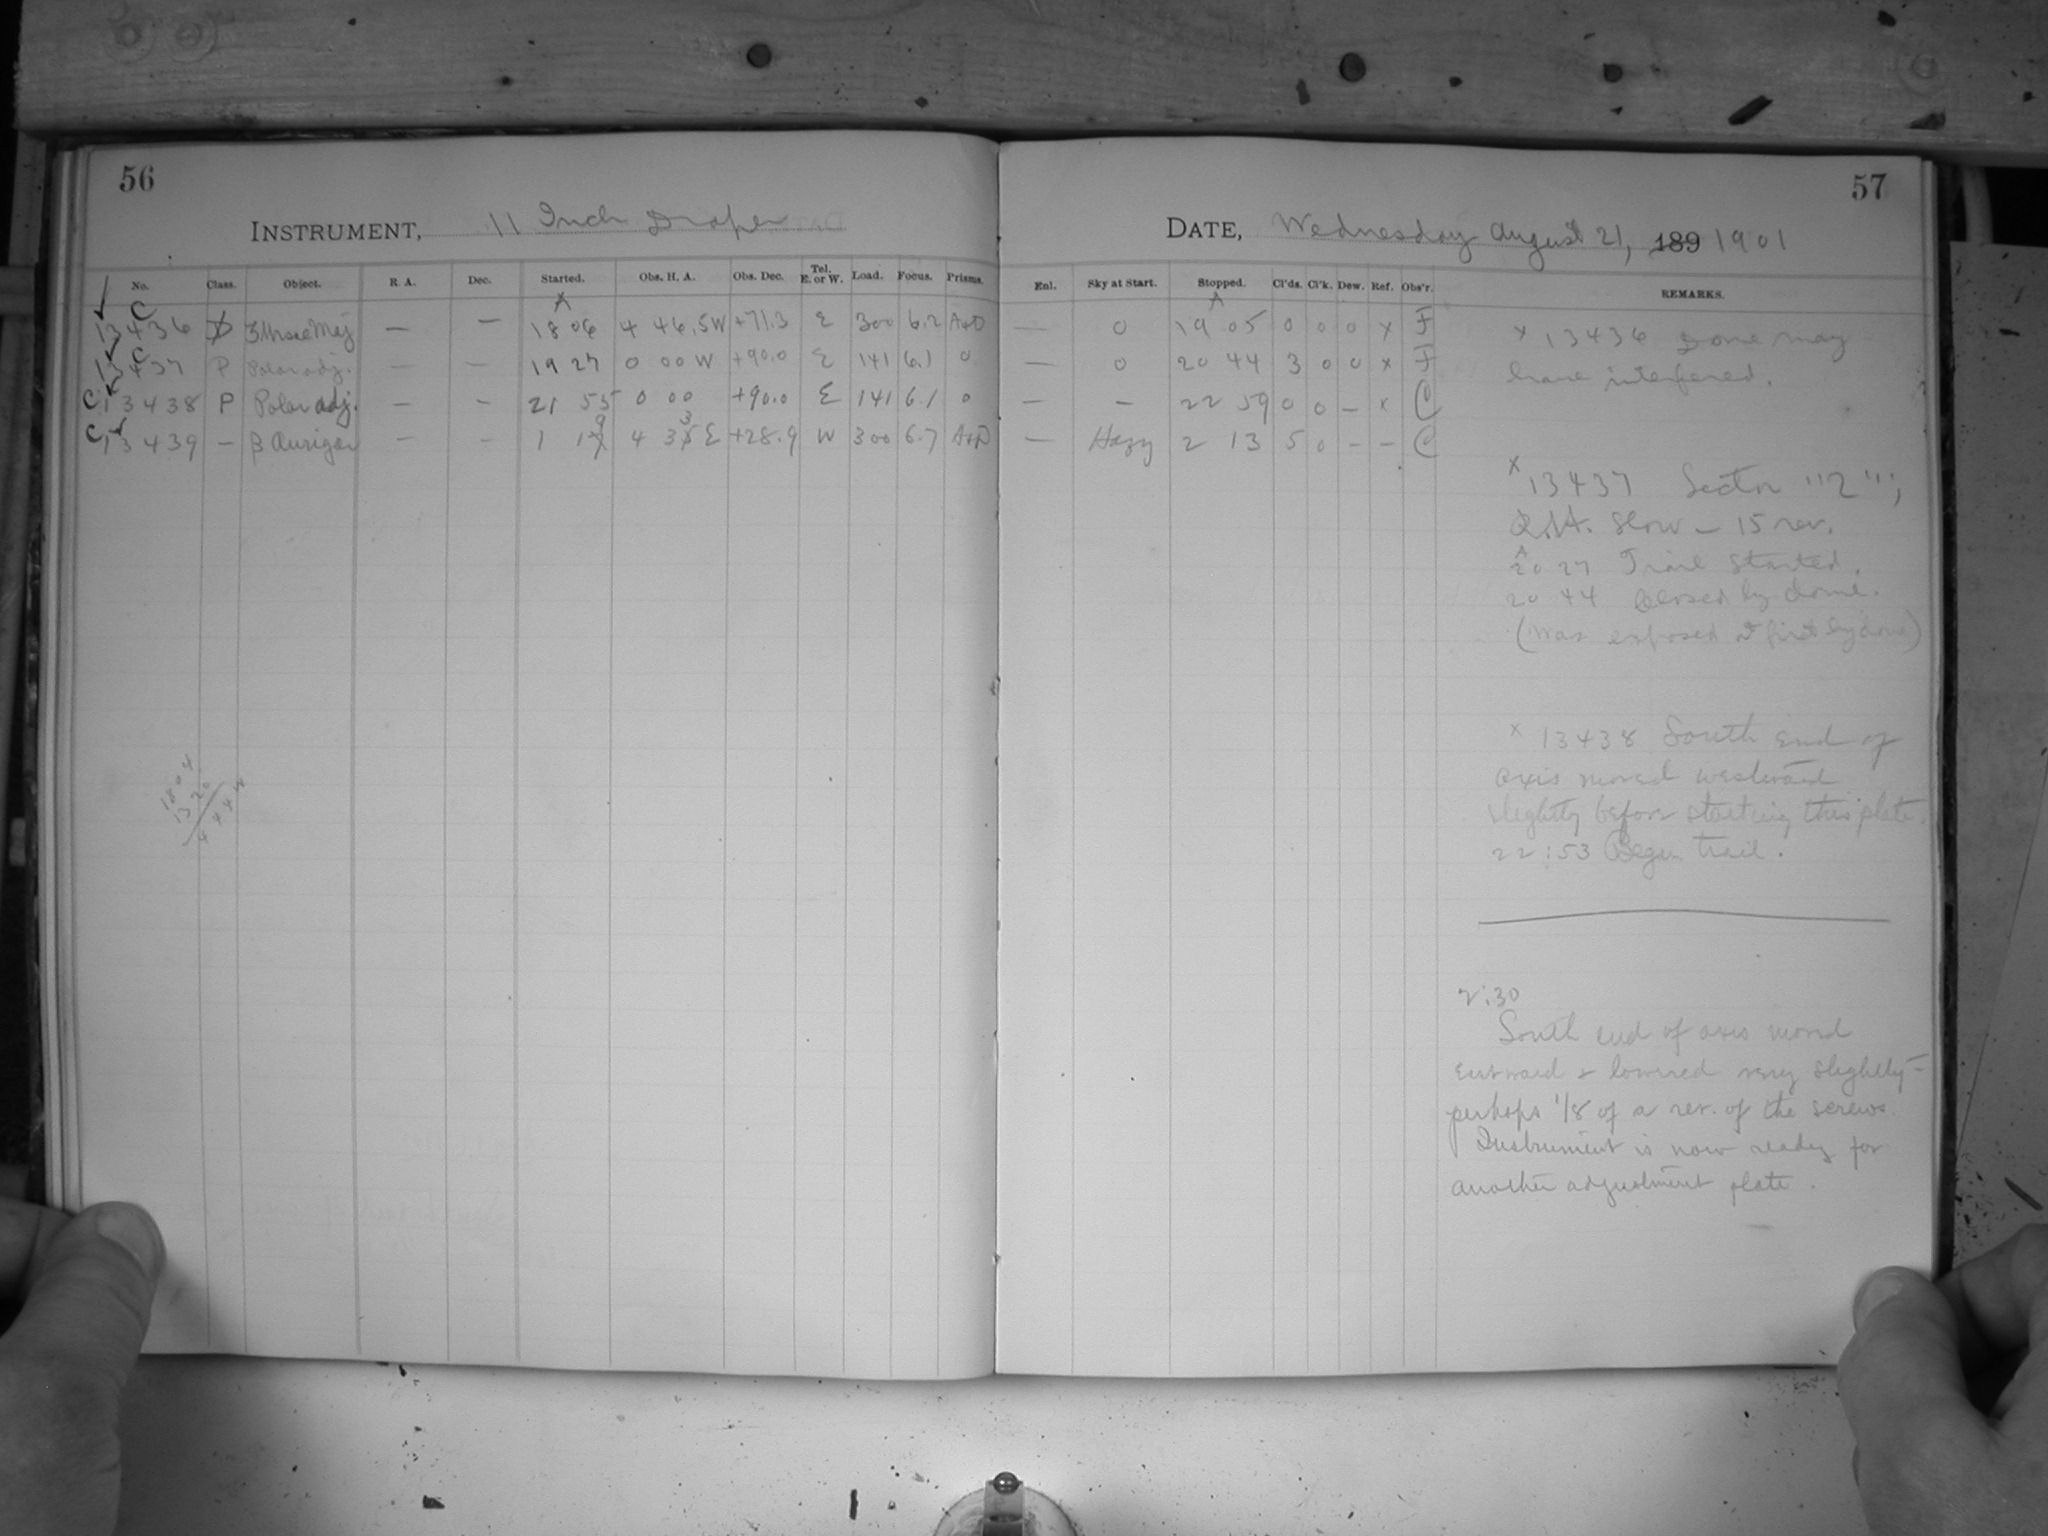 56
INSTRUMENT, 11 Inch Draper
No. Class. Object. R. A. Dec. Started. Obs. H. A. Obs. Dec. Tel. E. or W. Load. Focus. Prisms.
C
13436 ζ Ursae Maj — — 18 06 4 46.5W +71.3 E 300 6.2 A+D
C 13437 P Polar adj. — — 19 27 0 00 W +90.0 E 141 6.1 0
C 13438 P Polar adj. — — 21 55 0 00 +90.0 E 141 6.1 0
C 13439 — β Aurigae — — 1 19 4 33 E +28.9 W 300 6.7 A+D
1804
1320
444
57
DATE, Wednesday August 21, 189 1901
Enl. Sky at Start. Stopped. Cl'ds. Cl'k. Dew. Ref. Obs'r. REMARKS.
— 0 19 05 0 0 0 x F
— 0 20 44 3 0 0 x F
— — 22 59 0 0 — x C
— Hazy 2 13 5 0 — — C
x 13436 Dome may
have interfered.
x 13437 Sector "2",
R.A. slow — 15 rev.
20 27 Trail started.
20 44 Closed by dome.
(Was exposed at first by dome)
x 13438 South end of
axis moved westward
slightly before starting this plate.
22:53 Began trail.
2:30
South end of axis moved
eastward & lowered very slightly —
perhaps 1/8 of a rev. of the screws.
Instrument is now ready for
another adjustment plate.